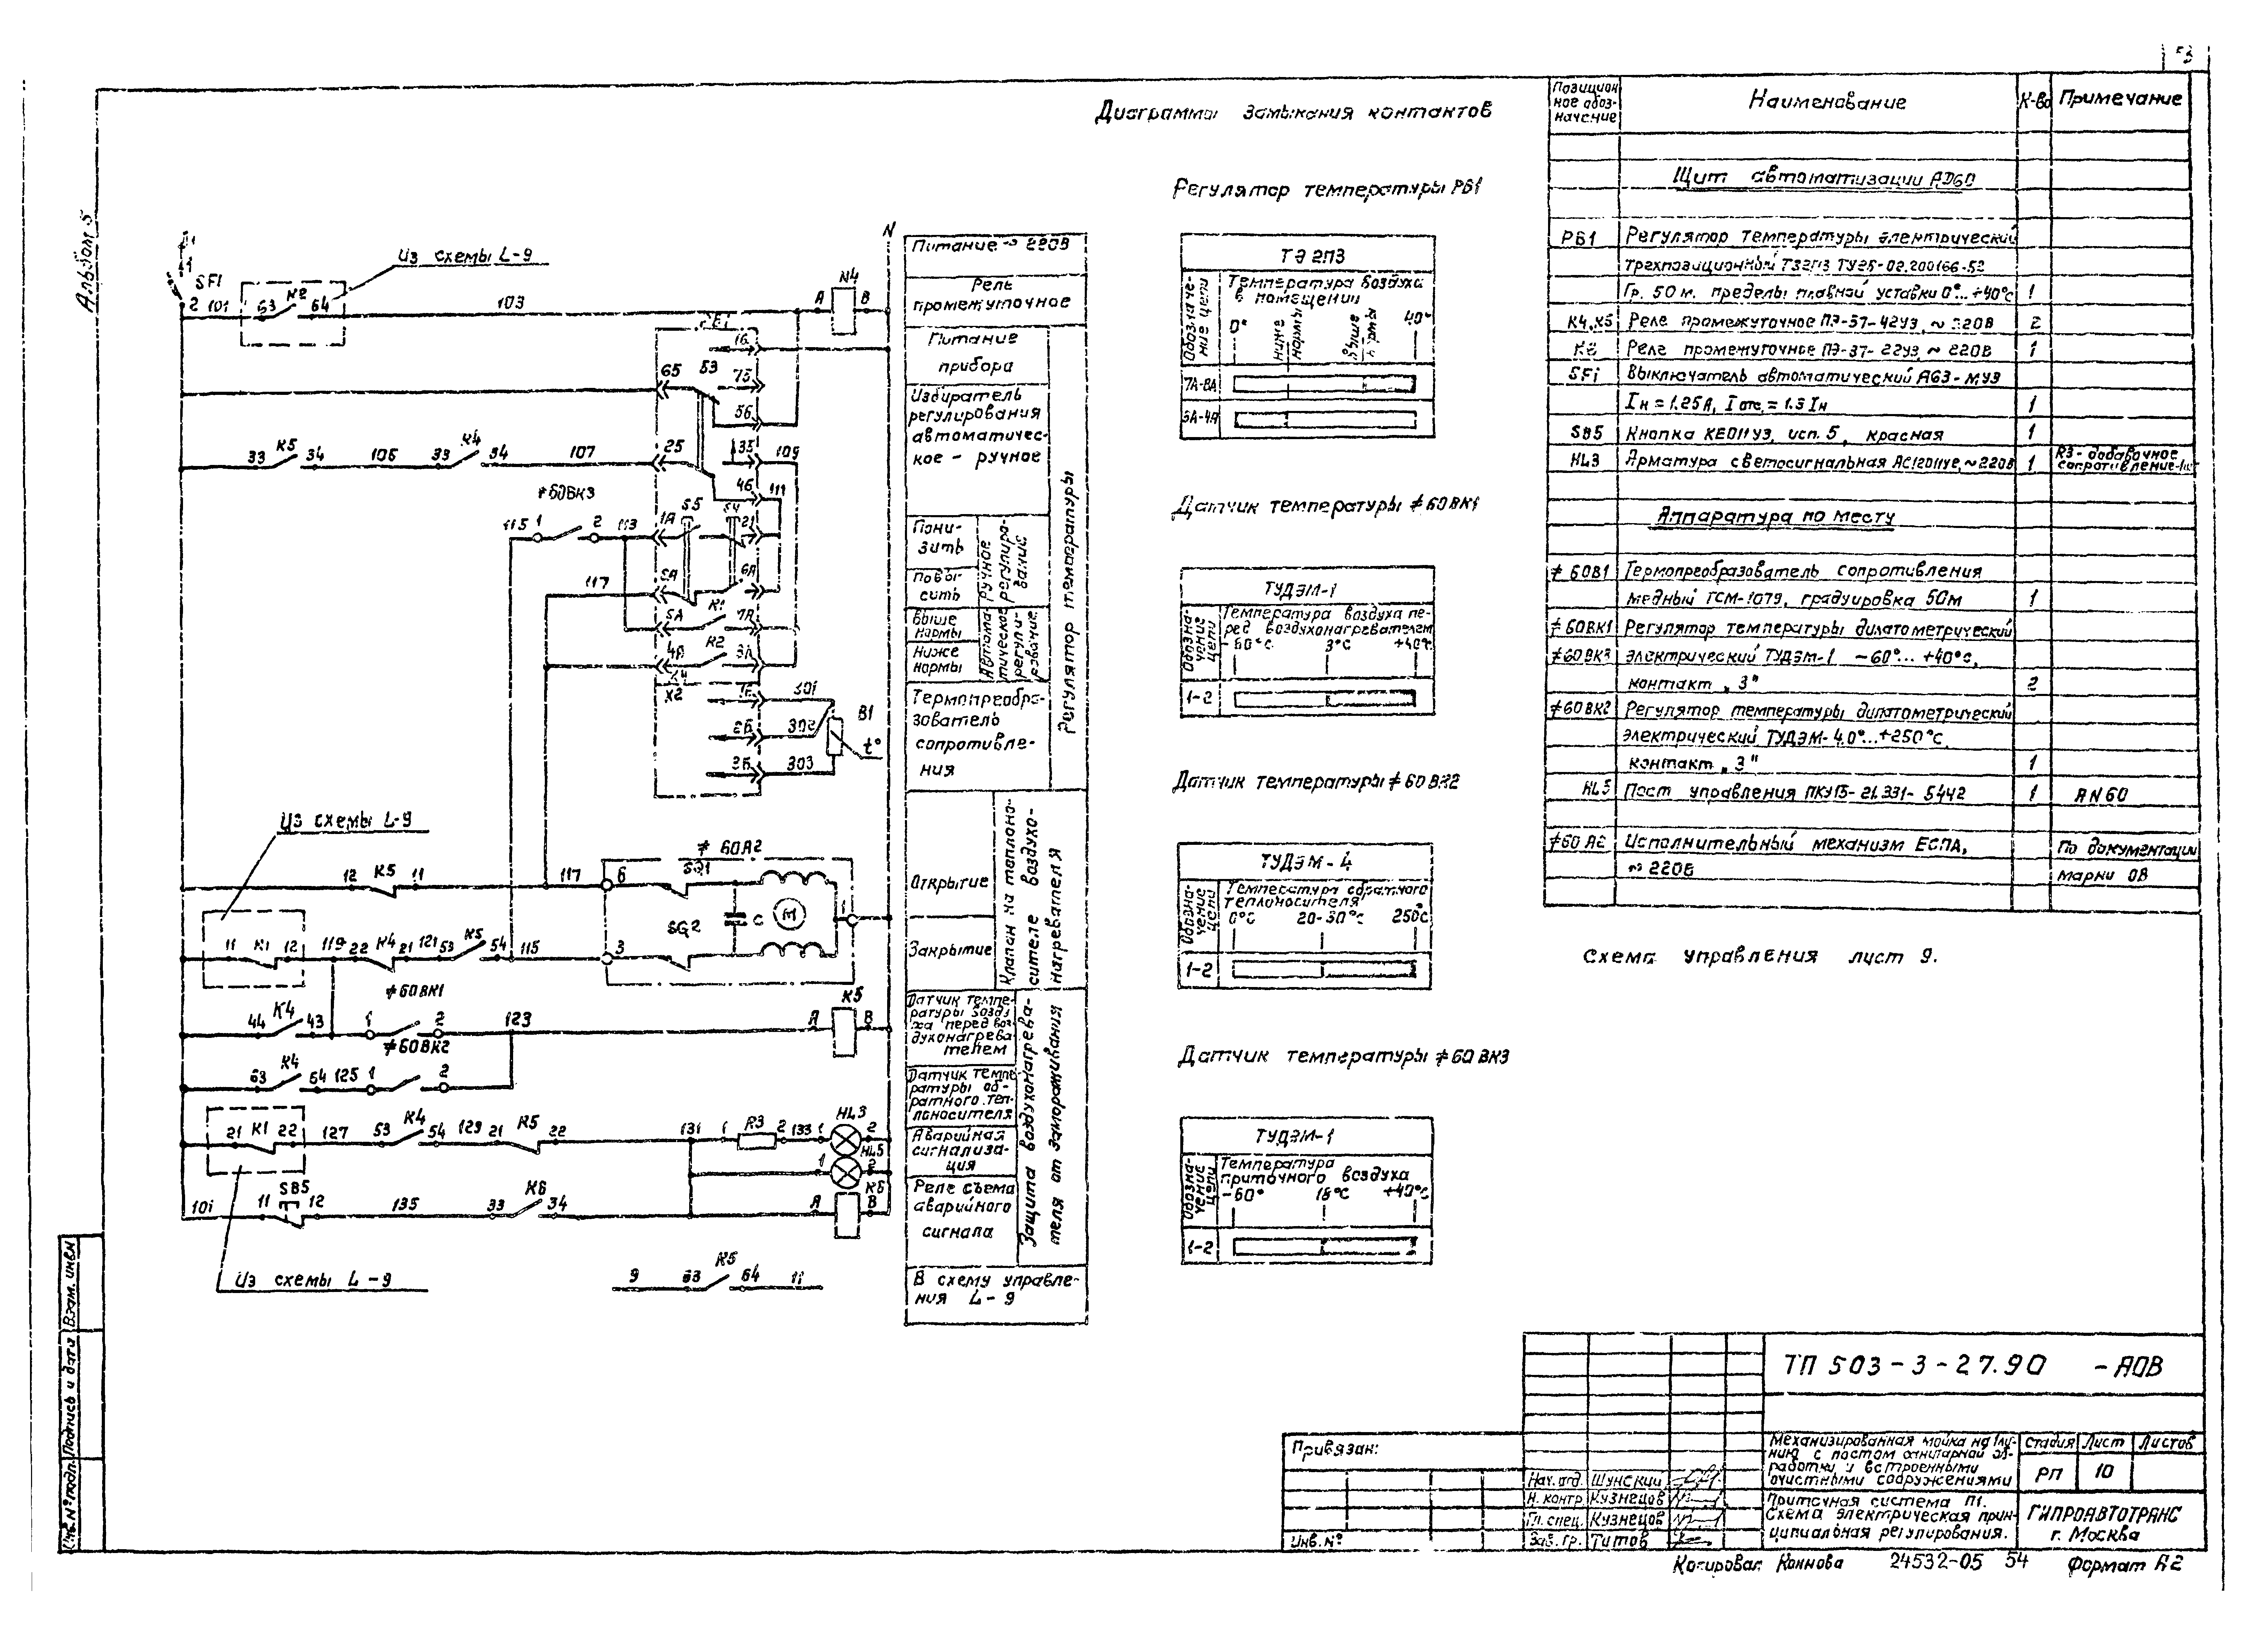 53
Альбом 5
Диаграммы замыкания контактов
SF1
2 101
Из схемы L-9
63 К2 64
103
А В
N
65 53 75
56
33 К5 34 105 33 К4 34 107
25 35 109
46 111
≠60ВК3
115 1 2 113
1А S5 S4 21
117
6А
5А К1 7А
4А К2 3А
Х2
301
302
303
В1
t°
Из схемы L-9
12 К5 11 117
≠ 60А2
6 SQ1
С М 1
SQ2
3
11 К1 12 119 22 К4 21 121 53 К5 54 115
≠60ВК1
44 К4 43 1 2 123 А К5 В
≠60ВК2
63 К4 64 125 1 2
21 К1 22 127 53 К4 54 129 21 К5 22 131 1 R3 2 133 1 HL3 2
1 HL5 2
101 11 SB5 12 135 33 К6 34 А К6 В
Из схемы L-9
9 63 К5 64 11
Питание ~ 220В
Реле промежуточное
Питание прибора
Избиратель регулирования автоматическое - ручное
Понизить
Повысить
Ручное регулирование
Выше нормы
Ниже нормы
Автоматическое регулирование
Термопреобразователь сопротивления
Регулятор температуры
Открытие
Закрытие
Клапан на теплоносителе воздухонагревателя
Датчик температуры воздуха перед воздухонагревателем
Датчик температуры обратного теплоносителя
Аварийная сигнализация
Реле съема аварийного сигнала
Защита воздухонагревателя от замораживания
В схему управления L-9
Регулятор температуры РБ1
ТЭ 2П3
Обозначение цепи
Температура воздуха в помещении
0° ниже нормы выше нормы 40°
7А-8А
5А-4А
Датчик температуры ≠60ВК1
ТУДЭМ-1
Обозначение цепи
Температура воздуха перед воздухонагревателем
-60°С 3°С +40°С
1-2
Датчик температуры ≠60ВК2
ТУДЭМ-4
Обозначение цепи
Температура обратного теплоносителя
0°С 20-30°С 250°С
1-2
Датчик температуры ≠60ВК3
ТУДЭМ-1
Обозначение цепи
Температура приточного воздуха
-60° 18°С +40°С
1-2
Позиционное обозначение Наименование К-во Примечание
Щит автоматизации АЭ60
РБ1 Регулятор температуры электрический
трехпозиционный ТЭ2П3
Гр. 50м. пределы плавной уставки 0°...+40°С 1
К4,К5 Реле промежуточное ПЭ-37-42У3, ~ 220В 2
К6 Реле промежуточное ПЭ-37-22У3 ~ 220В 1
SF1 Выключатель автоматический А63-МУ3
Iн = 1.25А, Iотс. = 1.3 Iн 1
SB5 Кнопка КЕ011У3, исп. 5, красная 1
HL3 Арматура светосигнальная ~220В 1 R3-добавочное сопротивление
Аппаратура по месту
≠ 60В1 Термопреобразователь сопротивления
медный ТСМ-1079, градуировка 50м 1
≠60ВК1 Регулятор температуры дилатометрический
≠60ВК3 электрический ТУДЭМ-1 -60°... +40°С,
контакт „З" 2
≠60ВК2 Регулятор температуры дилатометрический
электрический ТУДЭМ-4. 0°...+250°С,
контакт „З" 1
HL5 Пост управления ПКУ15-21.331-54У2 1 AN60
≠60 А2 Исполнительный механизм ЕСПА, По документации
~ 220В марки ОВ
Схема управления лист 9.
Инв. N° подл. Подпись и дата Взам. инв.N
Привязан:
Инв. N°
ТП 503-3-27.90 -АОВ
Нач. отд. Шунский
Н. контр. Кузнецов
Гл. спец. Кузнецов
Зав. гр. Титов
Механизированная мойка на
с постом санитарной об-
работки и встроенными
очистными сооружениями
Стадия Лист Листов
РП 10
Приточная система П1.
Схема электрическая прин-
ципиальная регулирования.
ГИПРОАВТОТРАНС
г. Москва
Копировал Коннова 24532-05 54 Формат А2